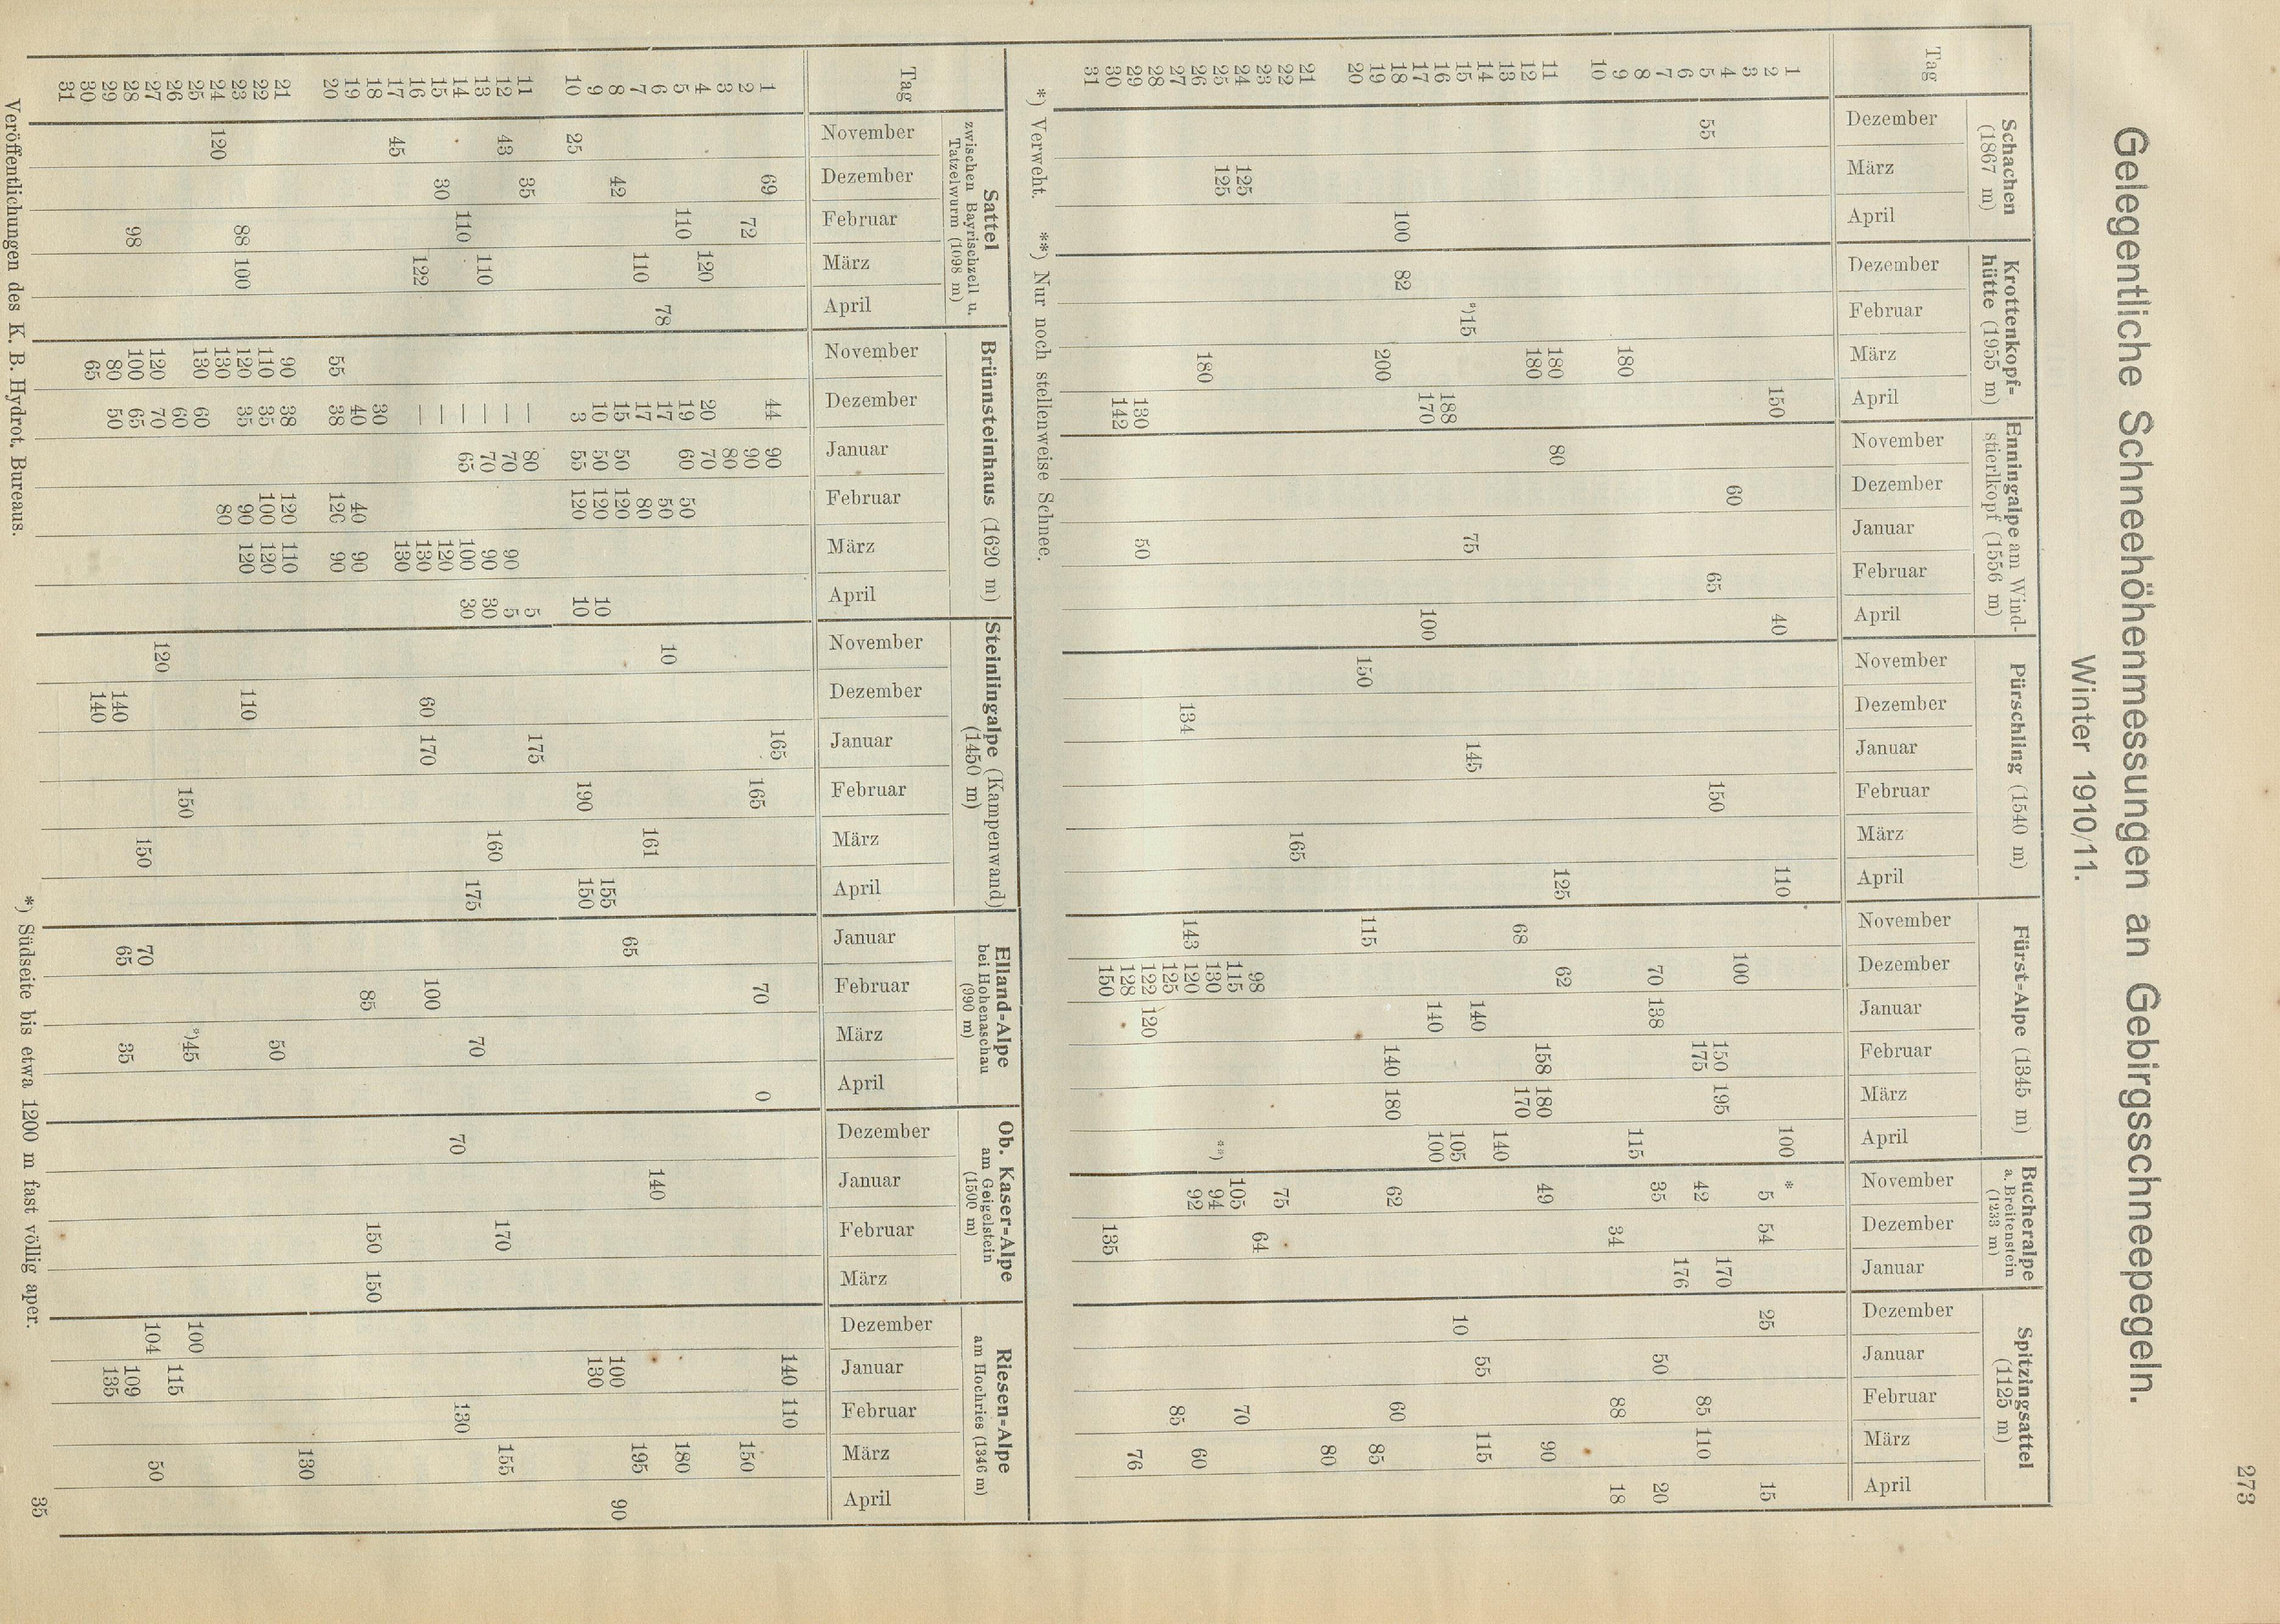 273
Gelegentliche Schneehöhenmessungen an Gebirgsschneepegeln.
Winter 1910/11.
Tag Schachen (1867 m) Krottenkopf-hütte (1955 m) Enningalpe am Wind-stierlkopf (1556 m) Pürschling (1540 m) Fürst=Alpe (1345 m) Bucheralpe a. Breitenstein (1233 m) Spitzingsattel (1125 m)
Dezember März April Dezember Februar März April November Dezember Januar Februar April November Dezember Januar Februar März April November Dezember Januar Februar März April November Dezember Januar Dezember Januar Februar März April
1
2 150 40 110 100 *
3 5 54 25 15
4 60 100
5 55 65 150 150 195 170
6 175 42 85 110
7 176
8 70 138 35 50 20
9 180 115
10 34 88 18
11 180 80 125 62
12 180 158 180 49 90
13 68 170
14 140
15 *)15 75 145 140 55 115
16 188 105 10
17 170 100 140 100
18 100 82
19 200 140 180 62 60
20 150 115 85
21 80
22 165
23 75
24 125 98 64
25 125 115 105 70
26 180 130 **) 94
27 134 143 120 92 60
28 125 85
29 130 50 122 120
30 142 128 76
31 150 135
*) Verweht. **) Nur noch stellenweise Schnee.
Tag Sattel zwischen Bayrischzell u. Tatzelwurm (1098 m) Brünnsteinhaus (1620 m) Steinlingalpe (Kampenwand) (1450 m) Elland=Alpe bei Hohenaschau (990 m) Ob. Kaser=Alpe am Geigelstein (1500 m) Riesen=Alpe am Hochries (1346 m)
November Dezember Februar März April November Dezember Januar Februar März April November Dezember Januar Februar März April Januar Februar März April Dezember Januar Februar März Dezember Januar Februar März April
1 69 44 90 165 140 110
2 72 90 165 70 0
3 80 150
4 120 20 70
5 110 19 60 50
6 78 17 50 10 180
7 110 17 80 161 140
8 42 15 50 120 65 195
9 10 50 120 10 155 100 90
10 25 3 55 120 10 190 150 130
11 35 — 80 5 175
12 43 — 70 90 5
13 110 — 70 90 30 160 170 155
14 110 — 65 100 30 175 70
15 30 — 120 70 130
16 122 — 130 60 170 100
17 45 130
18 30
19 40 40 90 85 150 150
20 55 38 120 90
21 90 38 120 110 130
22 110 35 100 120 50
23 88 100 120 35 90 120 110
24 120 130 80
25 130 60
26 60 150 *)45 100
27 120 70 120 115
28 98 100 65 150 70 104 50
29 80 50 140 65 35 109
30 65 140 135
31
Veröffentlichungen des K. B. Hydrot. Bureaus. *) Südseite bis etwa 1200 m fast völlig aper. 35